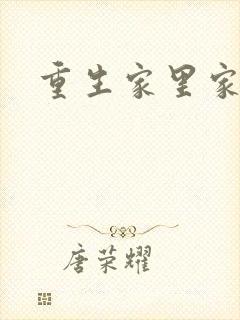 重生家里家
唐荣耀